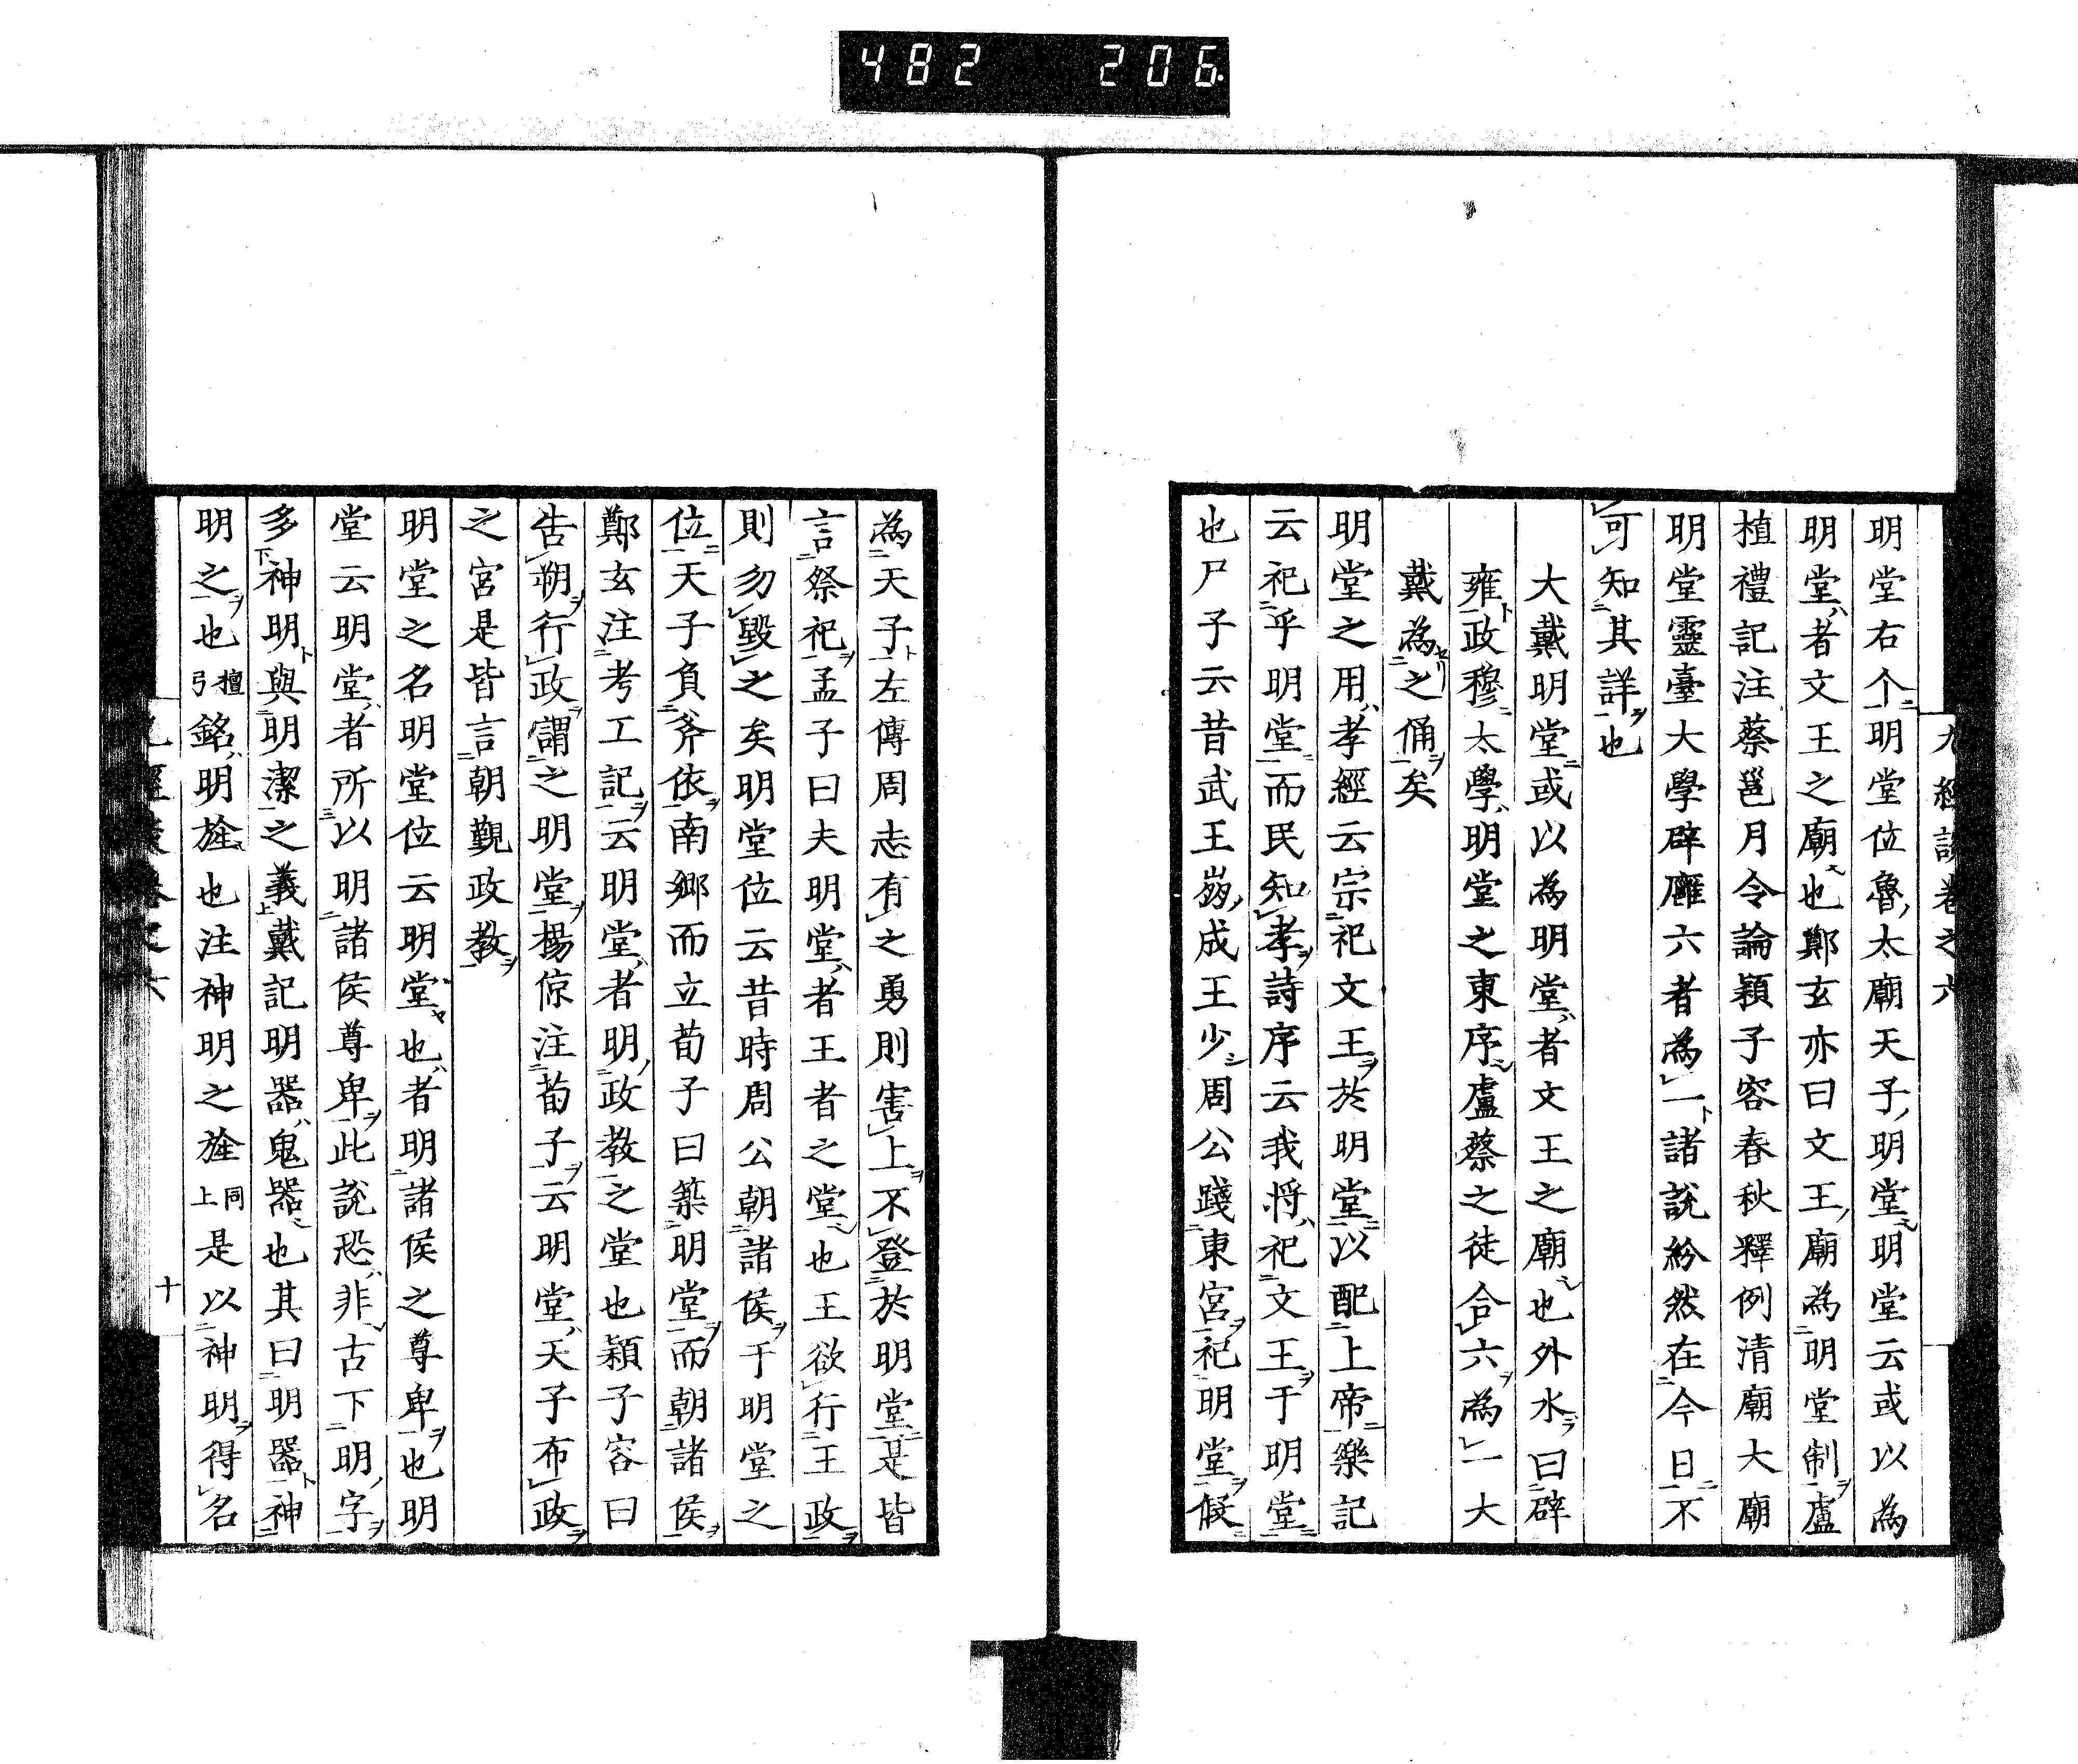 482 206
九經談卷之六
明堂右个明堂位魯太廟天子明堂明堂云或以為
明堂者文王之廟也鄭玄亦曰文王廟為明堂制盧
植禮記注蔡邕月令論穎子容春秋釋例清廟大廟
明堂靈臺大學辟廱六者為一諸說紛然在今日不
可知其詳也
大戴明堂或以為明堂者文王之廟也外水曰辟
雍政穆太學明堂之東序盧蔡之徒合六為一大
戴為之俑矣
明堂之用孝經云宗祀文王於明堂以配上帝樂記
云祀乎明堂而民知孝詩序云我將祀文王于明堂
也尸子云昔武王崩成王少周公踐東宮祀明堂假
為天子左傳周志有之勇則害上不登於明堂是皆
言祭祀孟子曰夫明堂者王者之堂也王欲行王政
則勿毀之矣明堂位云昔時周公朝諸侯于明堂之
位天子負斧依南鄉而立荀子曰築明堂而朝諸侯
鄭玄注考工記云明堂者明政教之堂也穎子容曰
告朔行政謂之明堂楊倞注荀子云明堂天子布政
之宮是皆言朝覲政教
明堂之名明堂位云明堂也者明諸侯之尊卑也明
堂云明堂者所以明諸侯尊卑此說恐非古下明字
多神明與明潔之義戴記明器鬼器也其曰明器神
明之也檀弓銘明旌也注神明之旌同上是以神明得名
十